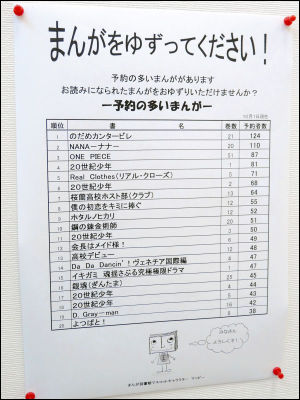 まんがをゆずってください!
予約の多いまんががあります
お読みになられたまんがをおゆずりいただけませんか?
ー予約の多いまんがー
10月1日現在
順位 書 名 巻数 予約者数
1 のだめカンタービレ 21 124
2 NANAーナナー 20 110
3 ONE PIECE 51 87
4 20世紀少年 1 81
5 Real Clothes(リアル・クローズ) 4 71
6 20世紀少年 2 68
7 桜蘭高校ホスト部(クラブ) 13 64
8 僕の初恋をキミに捧ぐ 12 55
9 ホタルノヒカリ 12 52
10 鋼の錬金術師 20 51
11 20世紀少年 3 50
12 会長はメイド様! 6 49
13 高校デビュー 12 48
14 Da Da Dancin'!ヴェネチア国際編 4 47
15 イキガミ 魂揺さぶる究極極限ドラマ 1 47
16 銀魂(ぎんたま) 25 45
17 20世紀少年 4 44
18 20世紀少年 5 43
19 D.Gray-man 16 42
20 よつばと! 8 38
みなさん
よろしくネ!